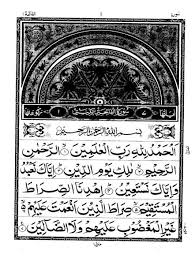 بِسْمِ اللهِ الرَّحْمٰنِ الرَّحِيْمِ
اَلْحَمْدُ لِلّٰهِ رَبِّ الْعٰلَمِيْنَ الرَّحْمٰنِ
الرَّحِيْمِ مٰلِكِ يَوْمِ الدِّيْنِ اِيَّاكَ نَعْبُدُ
وَاِيَّاكَ نَسْتَعِيْنُ اِهْدِنَا الصِّرَاطَ
الْمُسْتَقِيْمَ صِرَاطَ الَّذِيْنَ اَنْعَمْتَ عَلَيْهِمْ
غَيْرِ الْمَغْضُوْبِ عَلَيْهِمْ وَلَا الضَّآلِّيْنَ